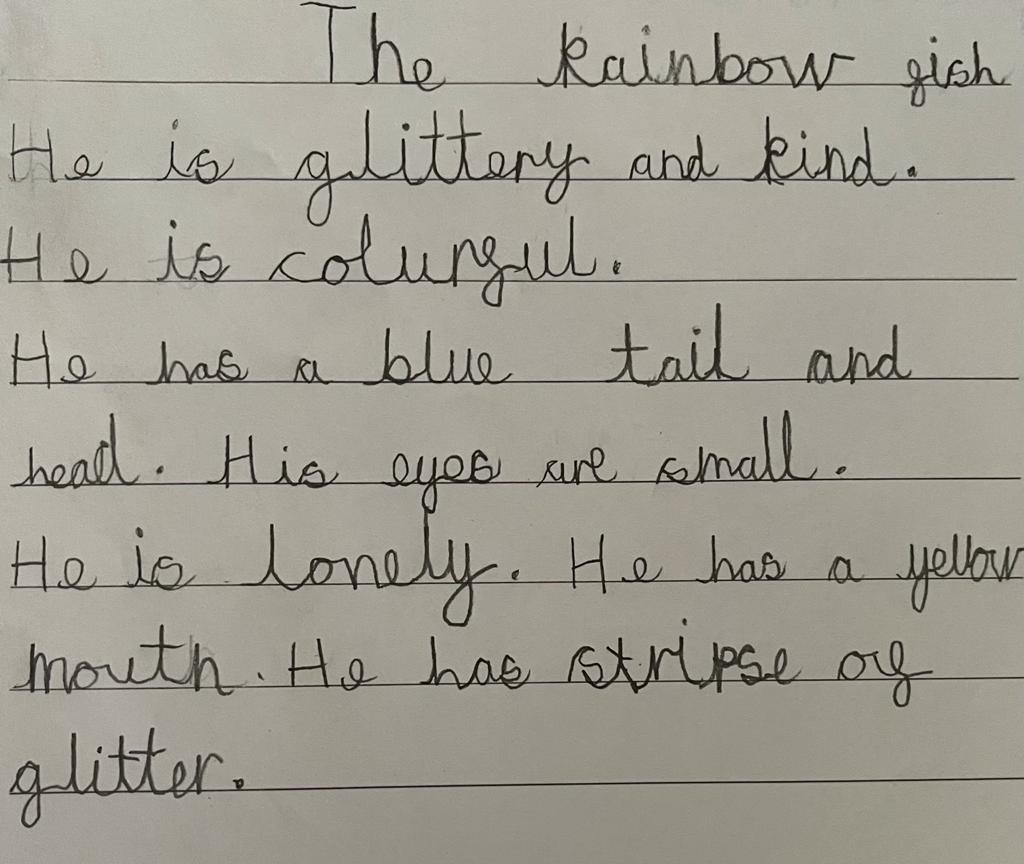 The Rainbow fish
He is glittery and kind.
He is colurful.
He has a blue tail and
head. His eyes are small.
He is lonely. He has a yellow
mouth. He has stripse of
glitter.